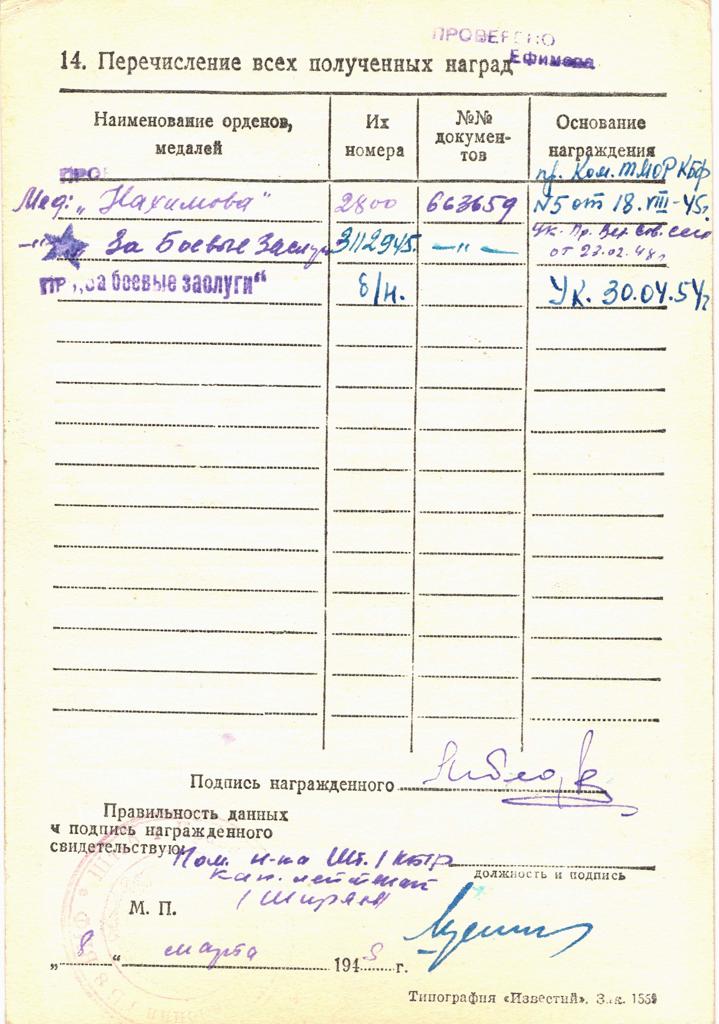 ПРОВЕРЕНО
Ефимова
14. Перечисление всех полученных наград
Наименование орденов, медалей
Их номера
№№ документов
Основание награждения
ПРО
Мед: „Нахимова" 2800 663659 пр. Ком. ТМОР КБФ N5 от 18.VIII-45г
-"- За Боевые Заслуги 3112945. -"- Ук. Пр. Вер. Сов. СССР
от 23.02.48г
ПР „За боевые заслуги" б/н. Ук. 30.04.54г
Подпись награжденного
Правильность данных
и подпись награжденного
свидетельствую:
Пом. н-ка Шт.
должность и подпись
кап. лейтенант
/Ширяев/
М. П.
„8" марта 194 г.
Типография «Известий». Зак. 1559